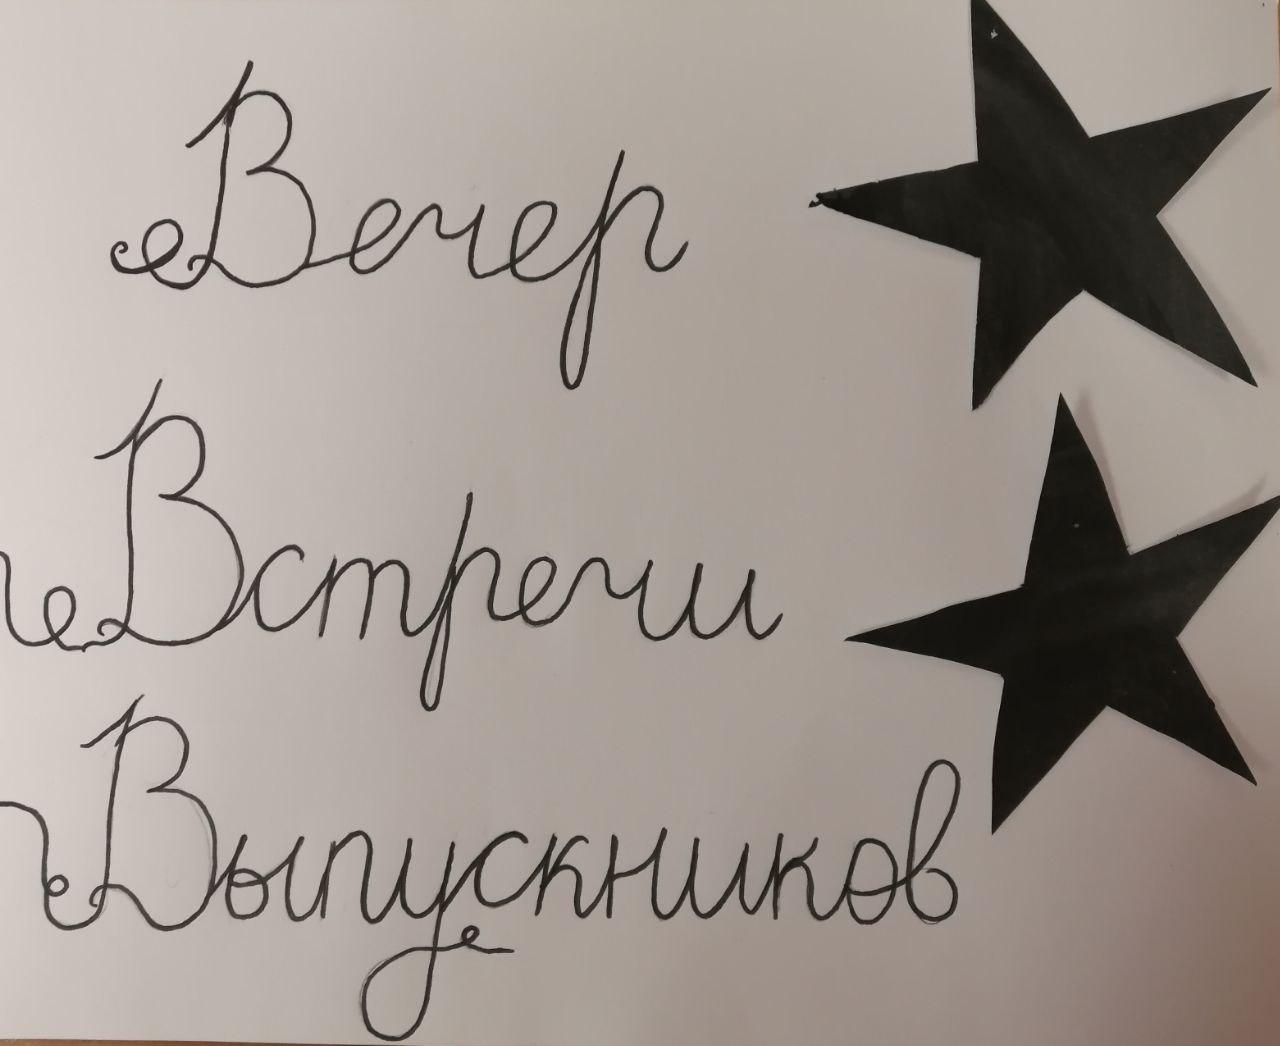 Вечер
Встречи
Выпускников